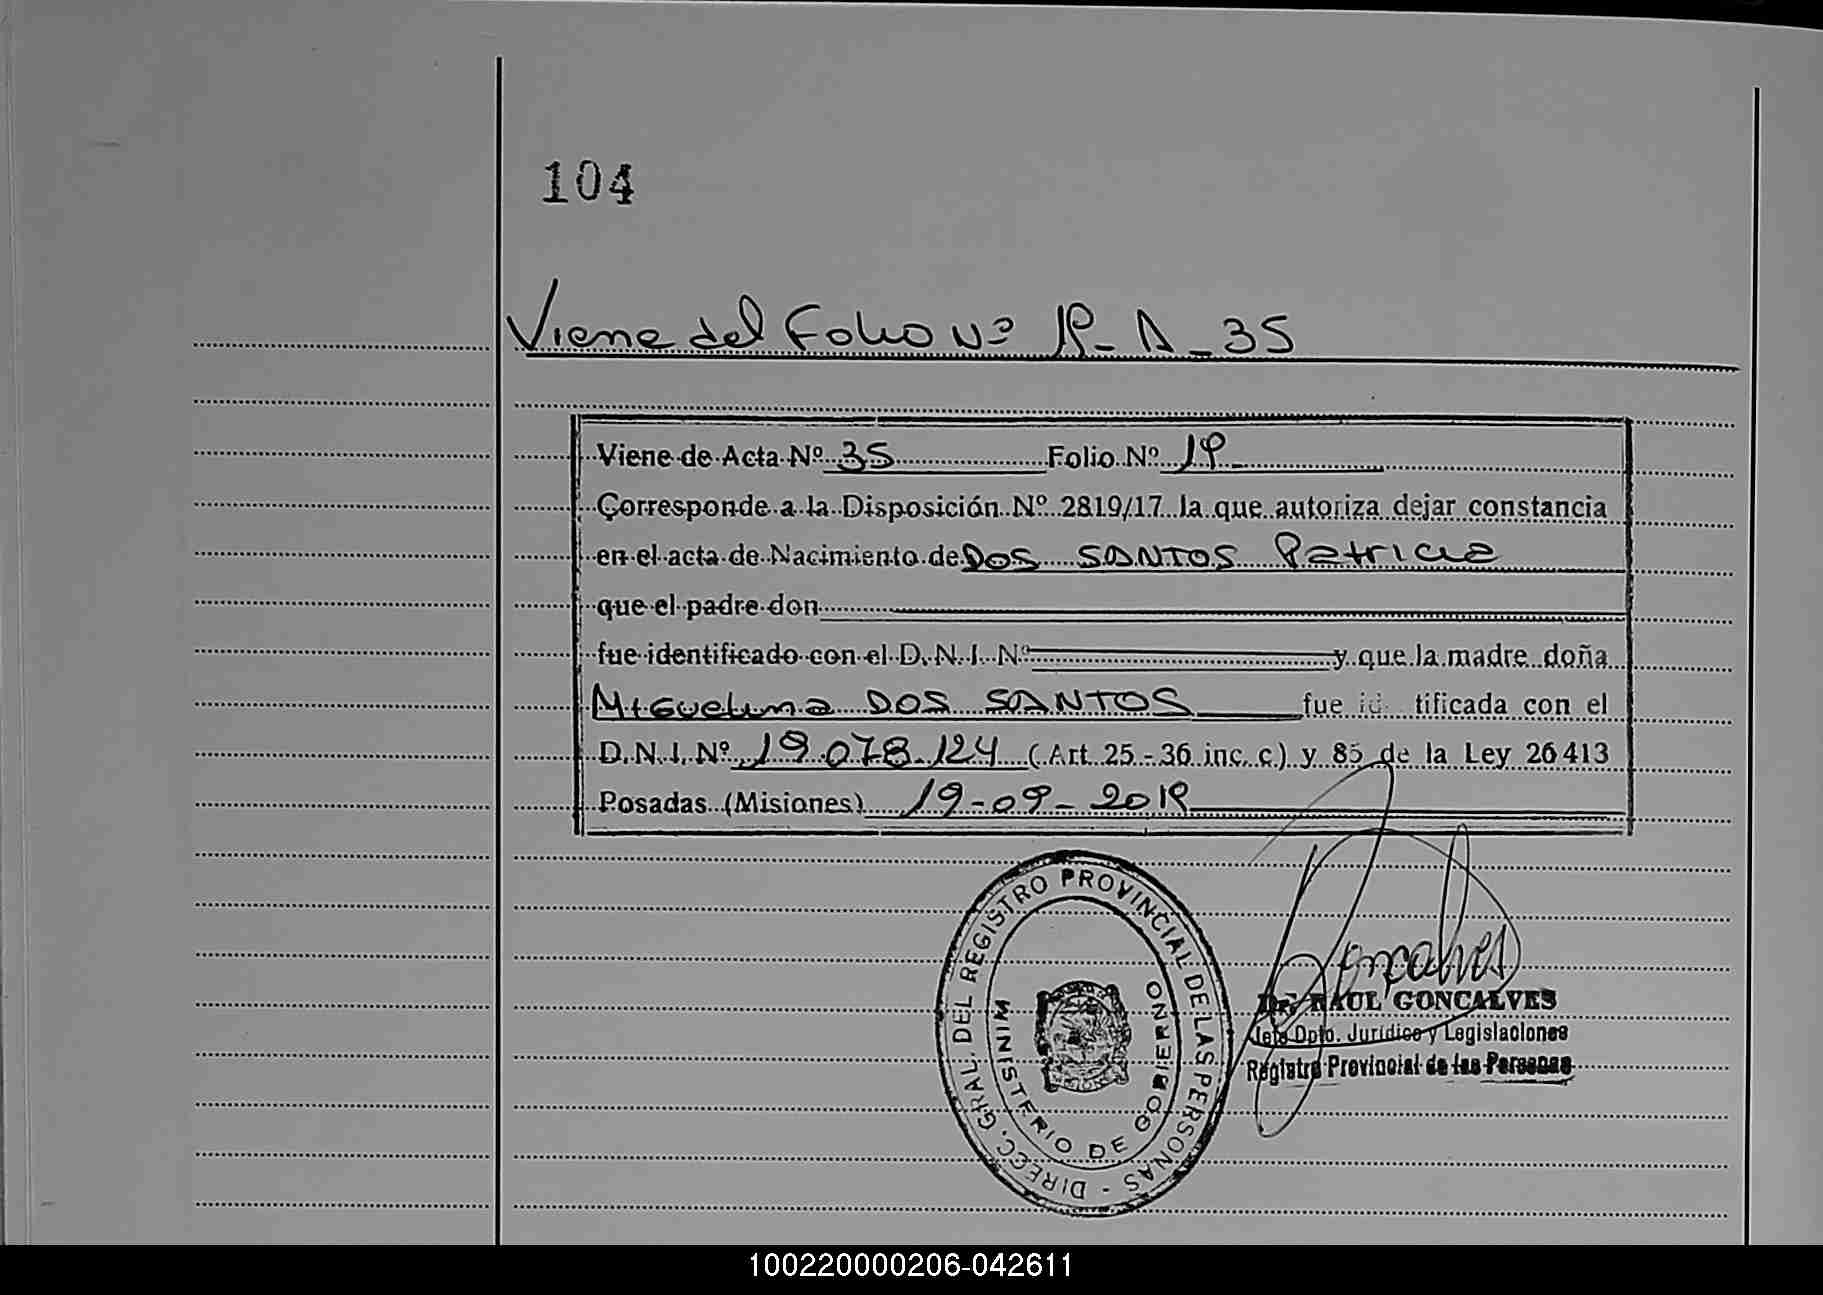 104
Viene del Folio Nº 18 - A - 35
Viene de Acta Nº 35 Folio Nº 18
Corresponde a la Disposición Nº 2819/17 la que autoriza dejar constancia
en el acta de Nacimiento de DOS SANTOS Patricia
que el padre don
fue identificado con el D. N. I. Nº y que la madre doña
Miguelina DOS SANTOS fue id tificada con el
D. N. I. Nº 19.078.124 (Art. 25 - 36 inc. c) y 85 de la Ley 26413
Posadas (Misiones) 19-09-2018
DIRECC. GRAL. DEL REGISTRO PROVINCIAL DE LAS PERSONAS -
MINISTERIO DE GOBIERNO
Goncalves
Dr. RAUL GONCALVES
Jefe Dpto. Jurídico y Legislaciones
Registro Provincial de las Personas
100220000206-042611